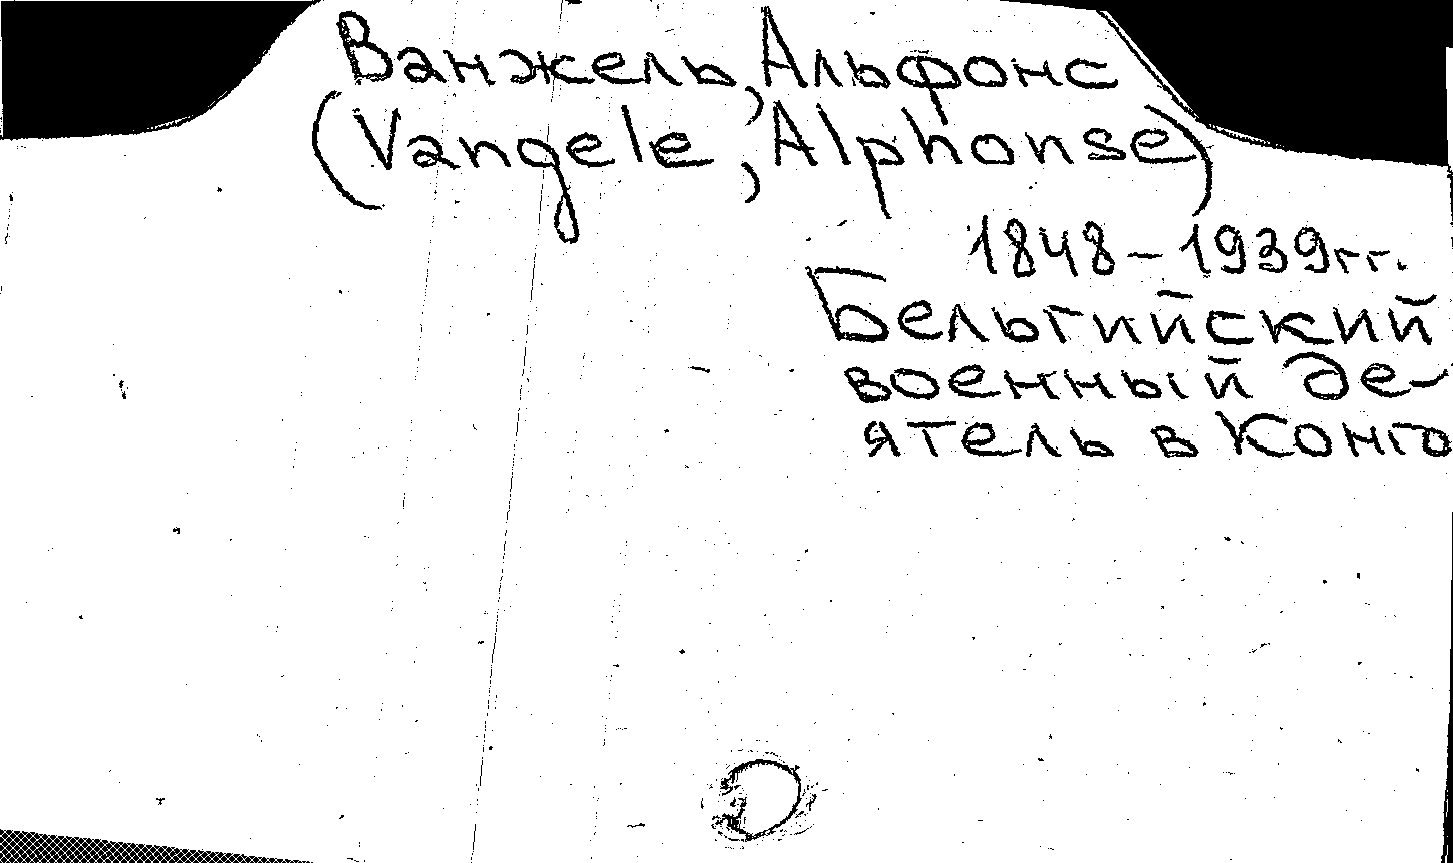 Ванжель, Альфонс
(Vangele, Alphonse)
1848-1939гг.
Бельгийский
военный де-
ятель в Конго